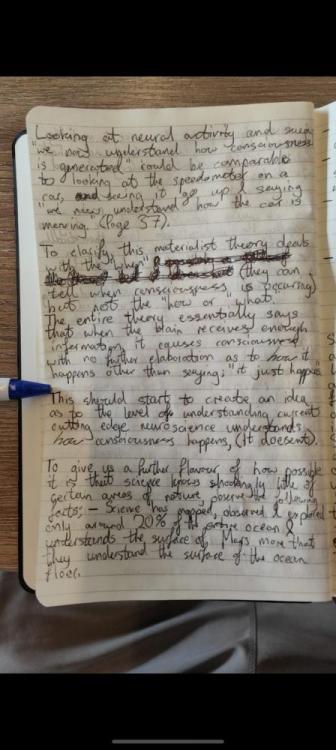 Looking at neural activity and saying
"we now understand how consciousness
is generated" could be comparable
to looking at the speedometer on a
car, and seeing it go up & saying
"we now understand how the car is
moving. (Page 37).
To clarify, this materialist theory deals
with the "when"
(they can
tell when consciousness is occuring)
but not the "how" or "what".
The entire theory essentially says
that when the brain receives enough
information it causes consciousness
with no further elaboration as to how it
happens other than saying; "it just happens"
This should start to create an idea
as to the level of understanding current
cutting edge neuroscience understands
how consciousness happens, (It doesent).
To give us a further flavour of how possible
it is that science knows shockingly little of
certain areas of nature, observe the following
facts; - Science has mapped, observed & explored
only around 20% of the entire ocean &
understands the surface of Mars more that
they understand the surface of the ocean
floor.